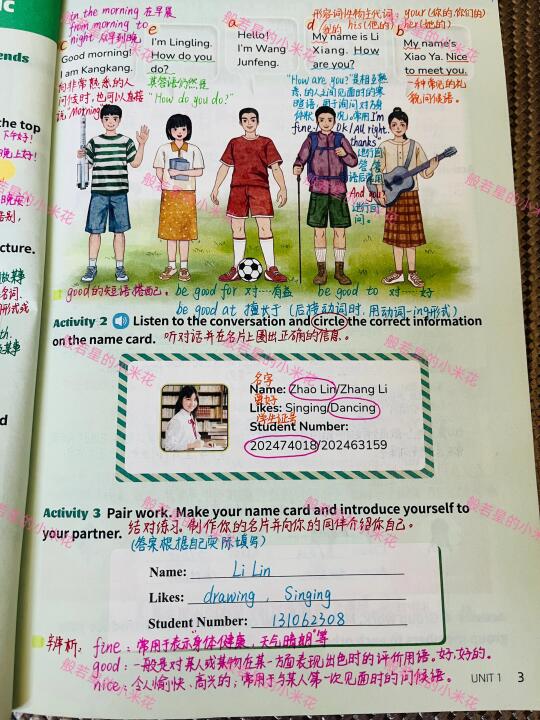 in the morning 在早晨
from morning to
night 从早到晚
形容词性物主代词：your(你的,你们的)
his(他的) her(她的)
c
Good morning!
I am Kangkang.
向非常熟悉的人
问候时，也可以直接
说"Morning"
e
I'm Lingling.
How do you
do?
其答语仍然是
"How do you do?"
a
Hello!
I'm Wang
Junfeng.
d
My name is Li
Xiang. How
are you?
"How are you?"是相互熟
悉的人之间见面时的寒
暄语，用于询问对方身
体状况，常用I'm
fine/OK/All right.
thanks
进行回
答，答
语后常用
And you
进行回
问。
b
My name's
Xiao Ya. Nice
to meet you.
一种常见的礼
貌问候语。
the top
下午好!
晚上好!
cture.
good的短语搭配。be good for 对…有益 be good to 对…好
be good at 擅长于(后接动词时,用动词-ing形式)
Activity 2 Listen to the conversation and circle the correct information
on the name card. 听对话并在名片上圈出正确的信息。
名字
Name: Zhao Lin/Zhang Li
喜好
Likes: Singing/Dancing
学生证号
Student Number:
202474018/202463159
Activity 3 Pair work. Make your name card and introduce yourself to
your partner. 结对练习。制作你的名片并向你的同伴介绍你自己。
(答案根据自己实际填写)
Name: Li Lin
Likes: drawing, Singing
Student Number: 131062308
辨析：fine：常用于表示"身体健康，天气晴朗"等
good：一般是对某人或某物在某一方面表现出色时的评价用语。好,好的。
nice：令人愉快、高兴的；常用于与某人第一次见面时的问候语。
UNIT 1 3
般若星的小米花